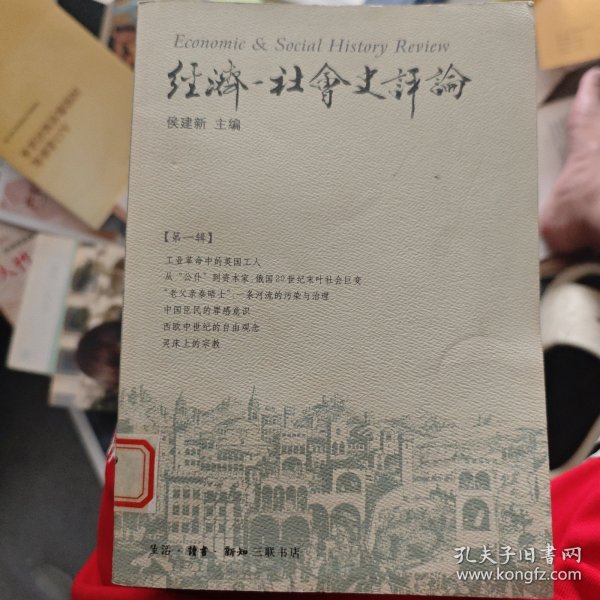 Economic & Social History Review
經濟-社會史評論
侯建新 主编
【第一辑】
工业革命中的英国工人
从“公仆”到资本家：俄国20世纪末叶社会巨变
“老父亲泰晤士”：一条河流的污染与治理
中国臣民的罪感意识
西欧中世纪的自由观念
灵床上的宗教
生活·讀書·新知三联书店
孔夫子旧书网
www.kongfz.com